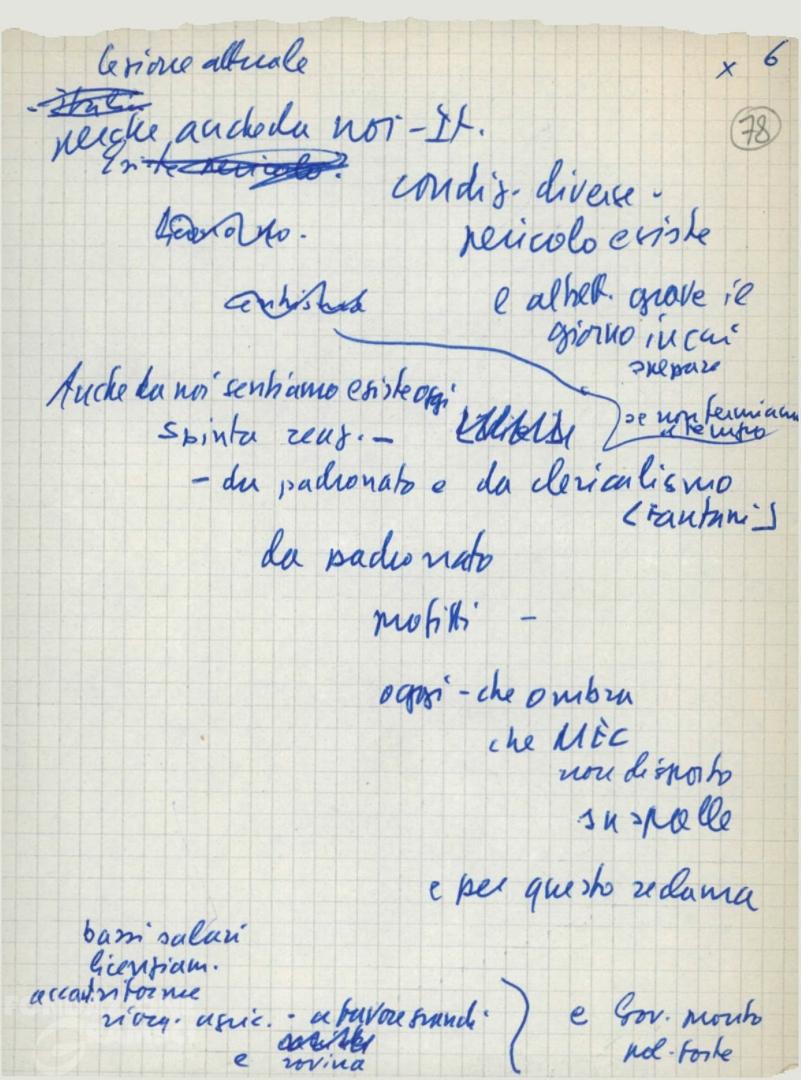 lezione attuale
x 6
78
perché anche da noi - It.
condiz. diverse -
pericolo esiste
e altrett. grave il
giorno in cui
Anche da noi sentiamo esiste oggi
se non fermiamo
a tempo
spinta reaz. -
- da padronato e da clericalismo
(Fanfani)
da padronato
profitti -
oggi - che ombra
che MEC
non disposto
su spalle
e per questo reclama
bassi salari
licenziam.
riforme
riorg. agric. - a favore grandi
e rovina
e Gov. monto
pol. forte